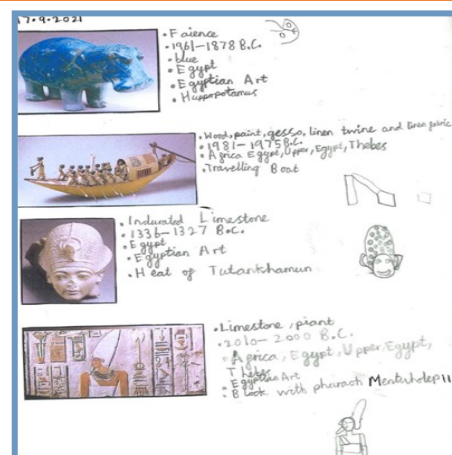 17.9.2021
• Faience
• 1961–1878 B.C.
• blue
• Egypt
• Egyptian Art
• Huppopotamus
• Wood, paint, gesso, linen twine and linen fabric
• 1981–1975 B.C.
• Agrica Egypt, Upper, Egypt, Thebes
• Travelling Boat
• Indurated Limestone
• 1336–1327 B.C.
• Egypt
• Egyptian Art
• Heat of Tutankhamun
• Limestone, piant
• 2010–2000 B.C.
• Agrica, Egypt, Upper Egypt,
Thebes
• Egyptian Art
• Block with pharaoh Mentuhotep II